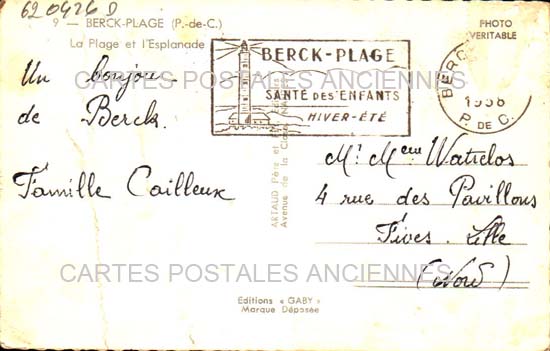 620426 D
9 — BERCK-PLAGE (P.-de-C.)
La Plage et l'Esplanade
PHOTO
VERITABLE
BERCK-PLAGE
SANTÉ DES ENFANTS
HIVER-ÉTÉ
1958
P. DE C.
CARTES POSTALES ANCIENNES
Un bonjour
de Berck.
Famille Cailleux
ARTAUD Père et
Avenue de la
Mr Mme Watrelos
4 rue des Pavillons
Fives. Lille
(Nord)
CARTES POSTALES ANCIENNES
Editions « GABY »
Marque Déposée